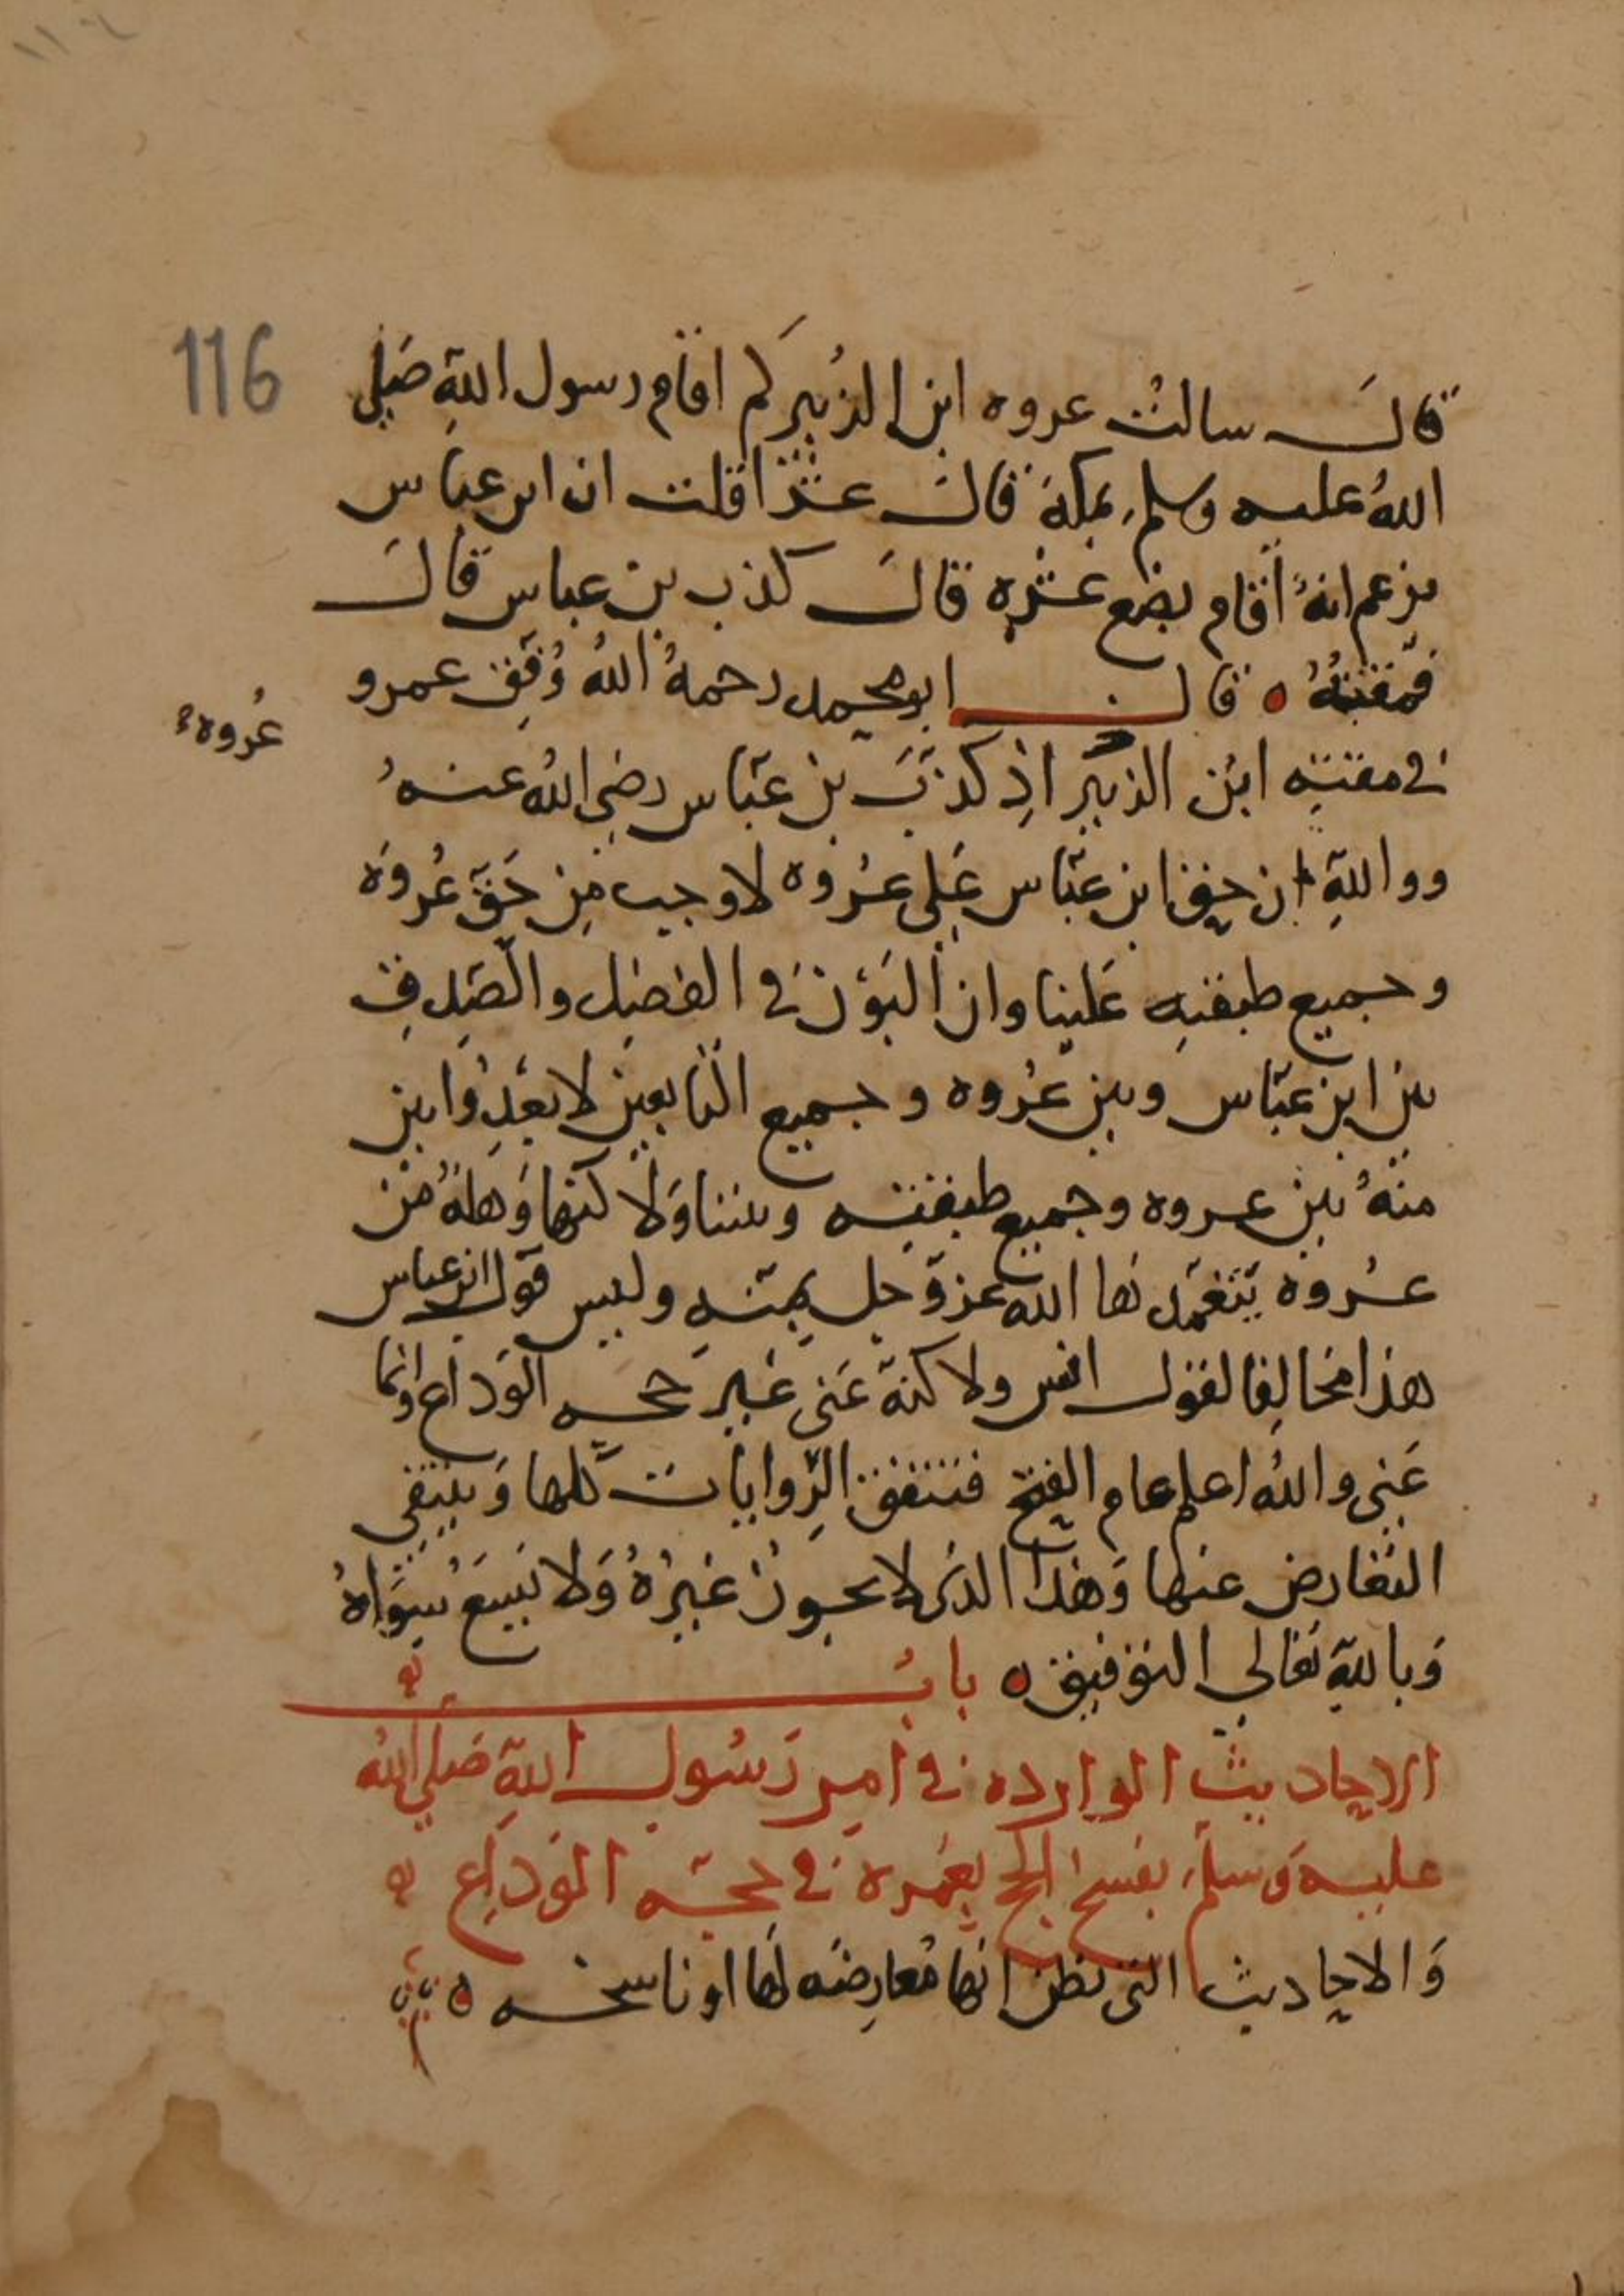 116
قالَ سالتُ عروه ابن الزبير كم اقام رسول اللهِ صَلى
اللهُ عليه وسلم بمكة قالَ عشرا قلت ان ابن عباس
يزعم انهُ اقام بضع عشره قالَ كذب بن عباس قالَ
فمقتهُ ه قالــ ابو محمد رحمهُ اللهُ وُفق عمرو
عُروه
في مقته ابن الزبير اذِ كذبَ بن عبّاس رضي الله عنهُ
ووالله ان حق ابن عبّاس عَلى عُروه لاوجب مِن حَقّ عُروَه
وجميع طبقتهِ عَلينا وان البَوْن في الفضل والصّدق
بين ابن عبّاس وبين عُروه وجميع التابعين لابعدُ وابين
منهُ بين عروه وجميع طبقته وبيننا وَلاكنها وَهلهٌ من
عُروه يتغمد لها الله عز وجل بمنهِ وليس قول ابن عباس
هذا مخالِفا لقول انس ولاكنهُ عَنى غير حجه الوَداع وانما
عَنى واللهُ اعلم عام الفتح فتتفق الرّوايات كلها وَينتفى
التعارض عنها وَهذا الذى لا يجوز غيرُهُ وَلا يَسَعُ سِوَاهُ
وَبالله تعَالى التوفيق ه بابُ
الاحاديث الوارده في امر رَسُول اللهِ صَلى اللهُ
عليهِ وَسلم بفسخ الحج بعُمره في حجّه الوَداع
وَالاحاديث التى نظن انها مُعارضَه لَها او ناسخه ه